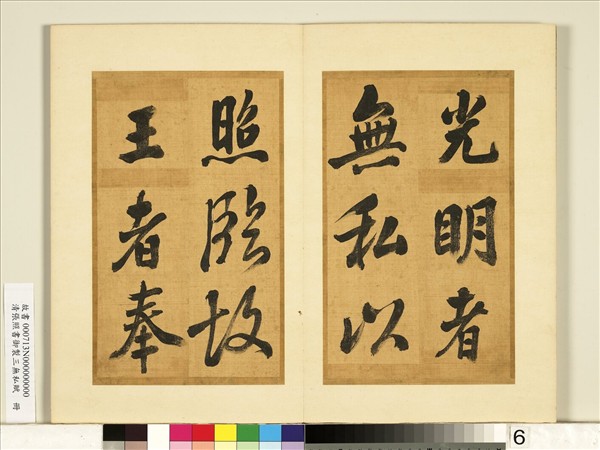 光明者
無私以
照臨故
王者奉
故書 000713N000000000
清張照書御製三無私賦 冊
6